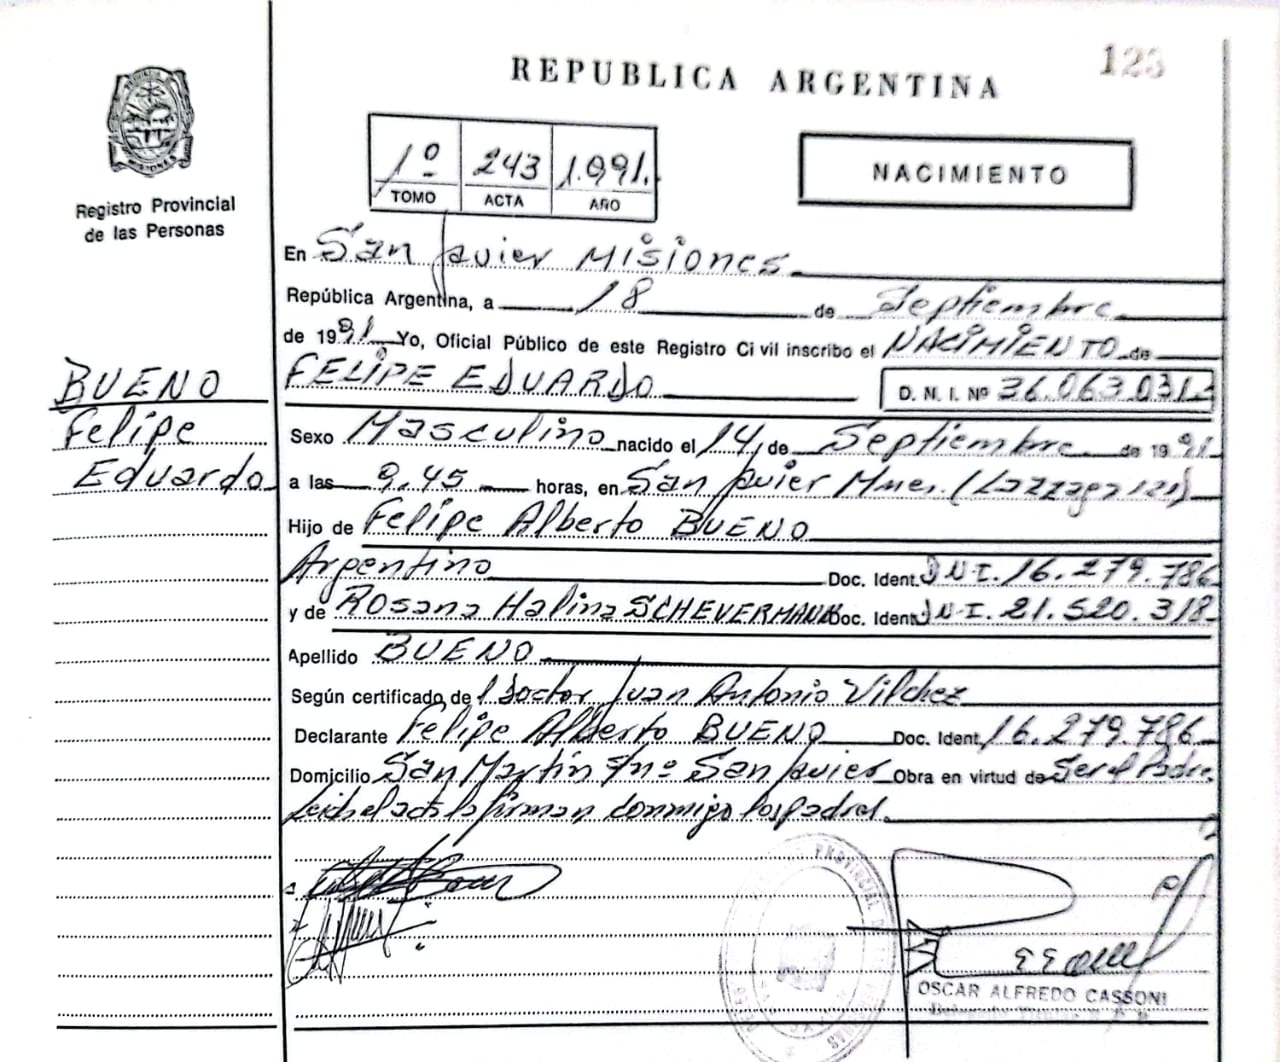 123
REPUBLICA ARGENTINA
1º 243 1.991.
TOMO ACTA AÑO
NACIMIENTO
MISIONES
Registro Provincial
de las Personas
En San Javier Misiones.
República Argentina, a 18 de Septiembre
de 1991 Yo, Oficial Público de este Registro Civil inscribo el NACIMIENTO de
FELIPE EDUARDO D. N. I. Nº 36.063.031
BUENO
Felipe
Eduardo
Sexo Masculino nacido el 14 de Septiembre de 1991
a las 9.45 horas, en San Javier Mnes.
Hijo de Felipe Alberto BUENO
Argentino Doc. Ident. D.N.I. 16.279.786
y de Rosana Halina SCHEVERMANN Doc. Ident. D.N.I. 21.520.318
Apellido BUENO
Según certificado del Doctor Juan Antonio Vilchez
Declarante Felipe Alberto BUENO Doc. Ident. 16.279.786
Domicilio San Martin S/nº San Javier Obra en virtud de Ser el Padre
Leida el acta la firman conmigo los padres.
OSCAR ALFREDO CASSONI